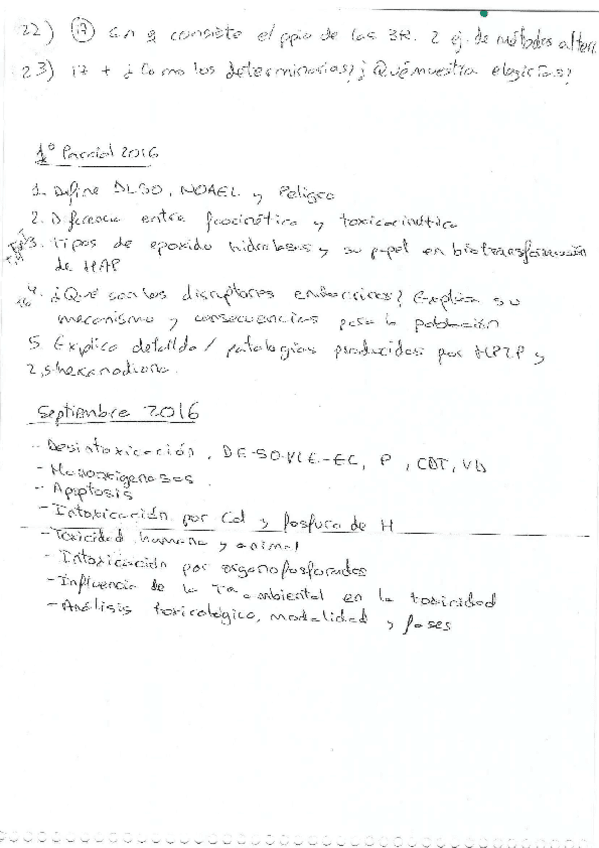 22) (17) En q consiste el ppio de las 3R. 2 ej. de métodos altern.
23) 17 + ¿Cómo los determinarías? ¿Qué muestra elegirías?
1º Parcial 2016
1. Define DL50, NOAEL y Peligro
2. Diferencia entre farmacocinética y toxicocinética
3. Tipos de epoxido hidrolasas y su papel en biotransformación
de HAP
4. ¿Qué son los disruptores endocrinos? Explica su
mecanismo y consecuencias para la población
5. Explica detalla/ patologías producidas por MPTP y
2,5-hexanodiona.
Septiembre 2016
- Desintoxicación, DE-50, VLE-EC, P, CDT, VD
- Monoxigenasas
- Apoptosis
- Intoxicación por Cd y fosfuro de H
- Toxicidad humana y animal
- Intoxicación por organofosforados
- Influencia de la Tª ambiental en la toxicidad
- Análisis toxicológico, modalidad y fases